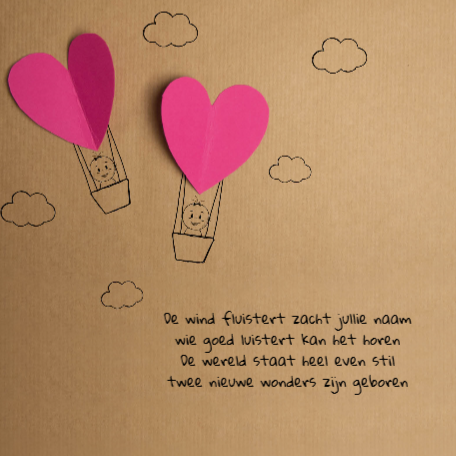 De wind fluistert zacht jullie naam
wie goed luistert kan het horen
De wereld staat heel even stil
twee nieuwe wonders zijn geboren